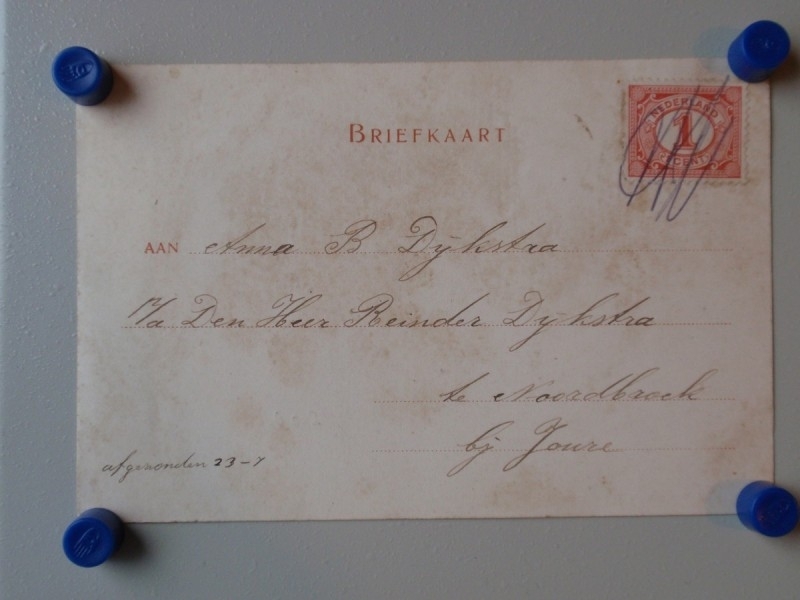 BRIEFKAART
NEDERLAND
1
CENT
AAN Anna B Dykstra
P/a Den Heer Reinder Dykstra
te Noordbroek
bij Joure
afgezonden 23-7